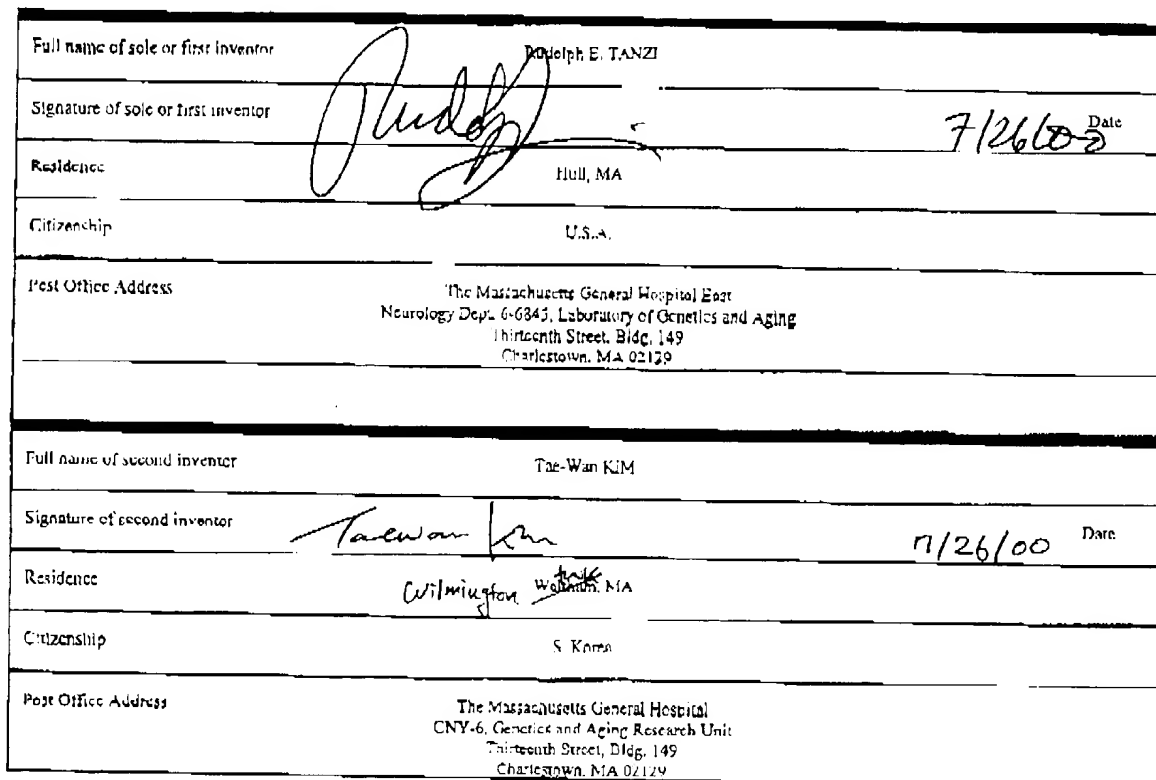 Full name of sole or first inventor Rudolph E. TANZI
Signature of sole or first inventor Rudolph 7/26/00 Date
Residence Hull, MA
Citizenship U.S.A.
Post Office Address
The Massachusetts General Hospital East
Neurology Dept. 6-6845, Laboratory of Genetics and Aging
Thirteenth Street, Bldg. 149
Charlestown, MA 02129
Full name of second inventor Tae-Wan KIM
Signature of second inventor Taewan Kim 7/26/00 Date
Residence Wilmington Waltham, MA
Citizenship S. Korea
Post Office Address
The Massachusetts General Hospital
CNY-6, Genetics and Aging Research Unit
Thirteenth Street, Bldg. 149
Charlestown, MA 02129